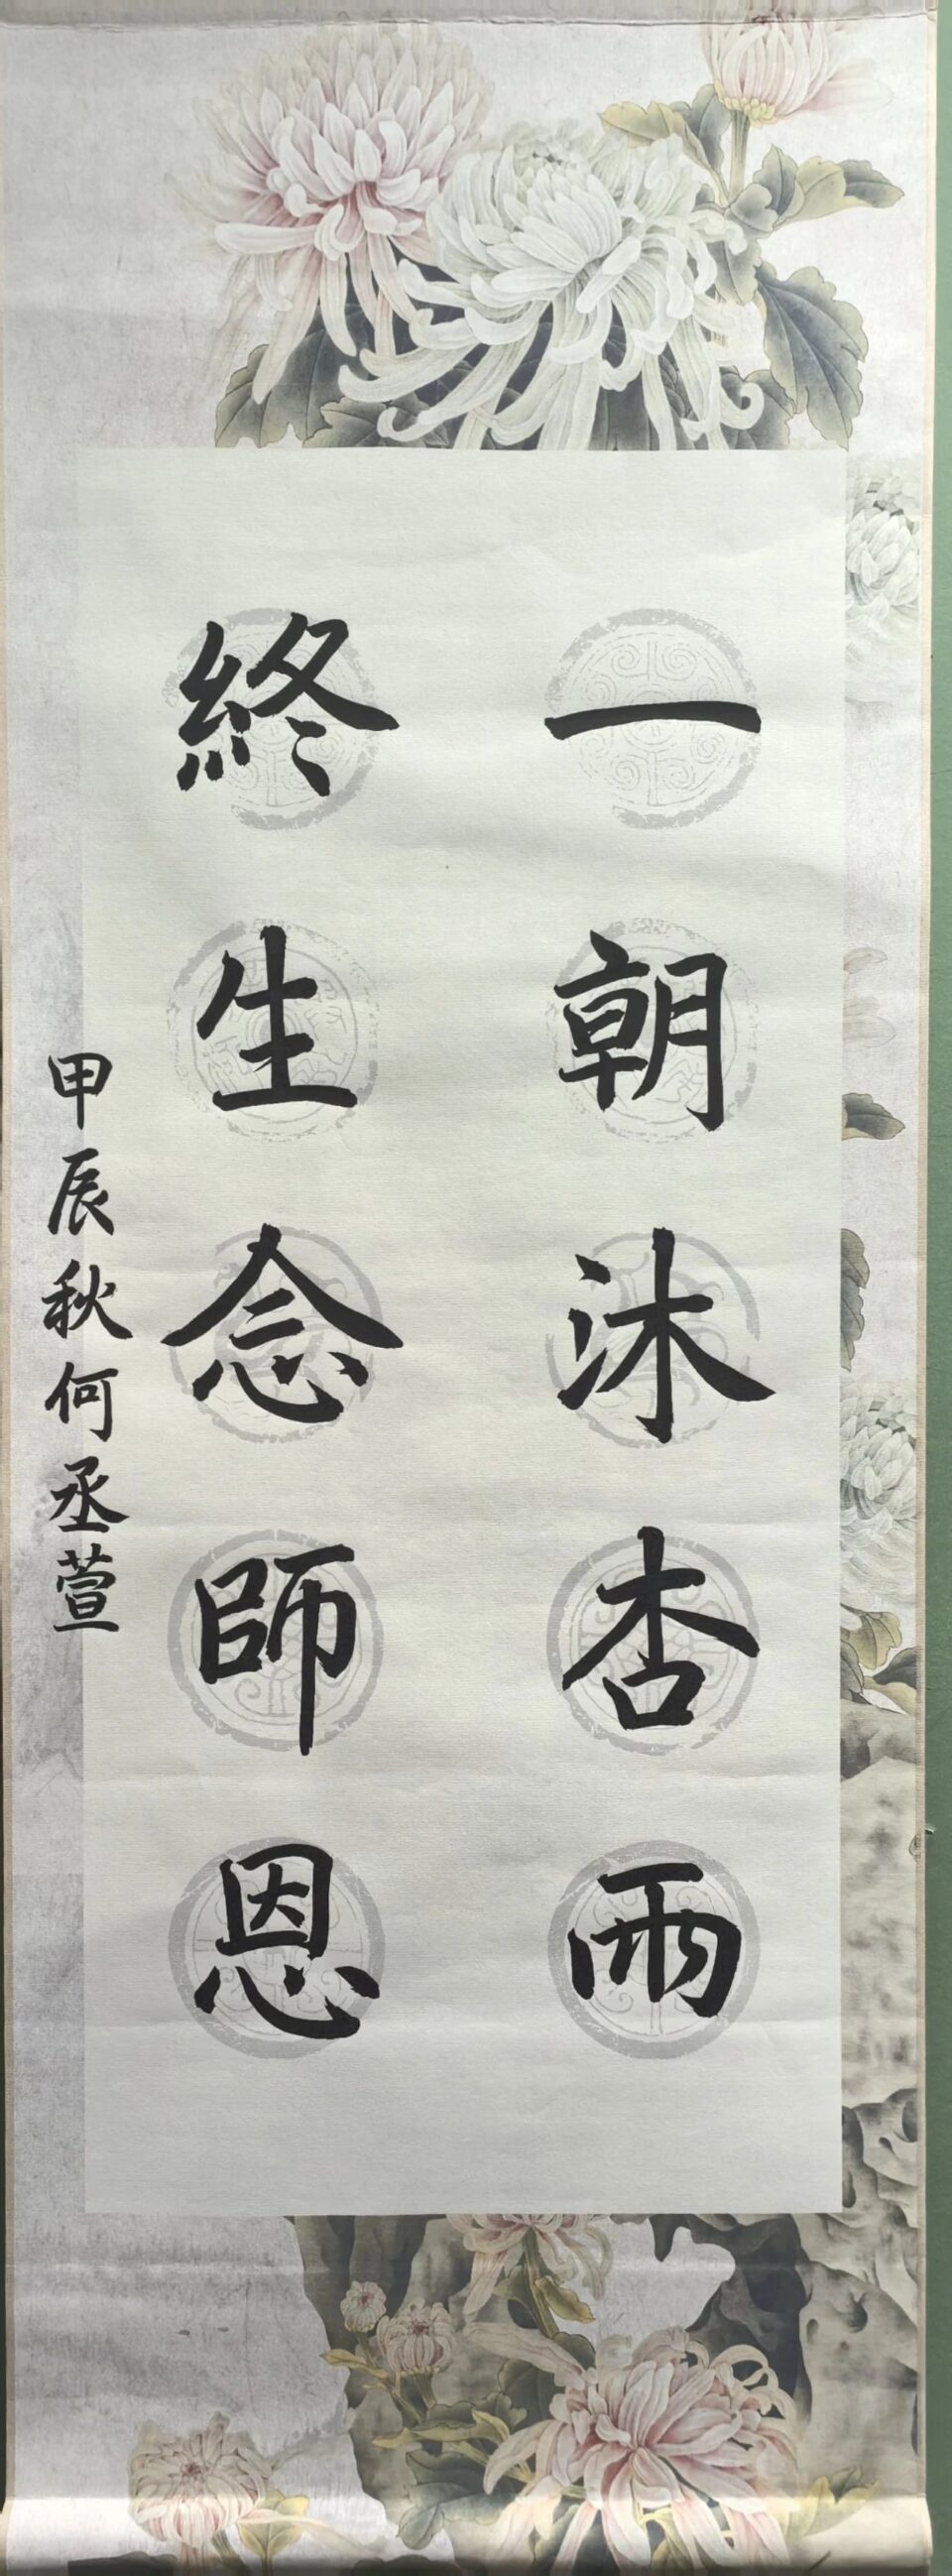 一朝沐杏雨
終生念師恩
甲辰秋何丞萱